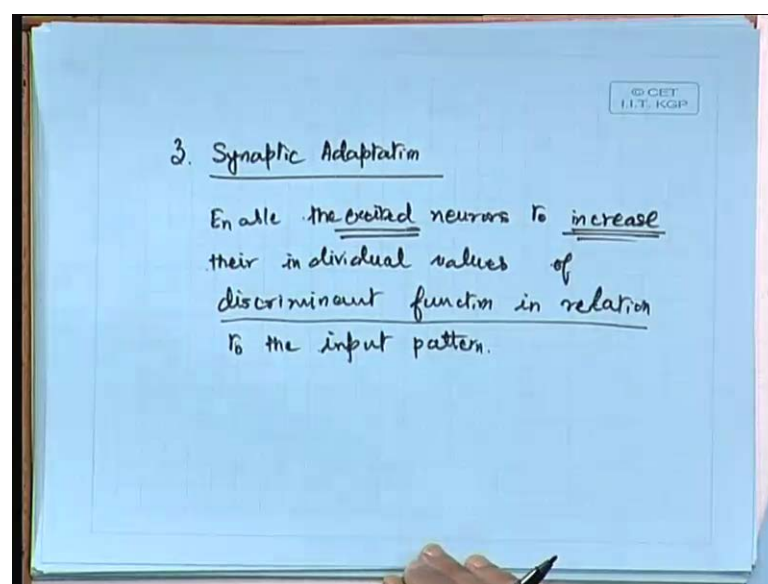 © CET
I.I.T. KGP
3. Synaptic Adaptation
Enable the excited neurons to increase
their individual values of
discriminant function in relation
to the input pattern.